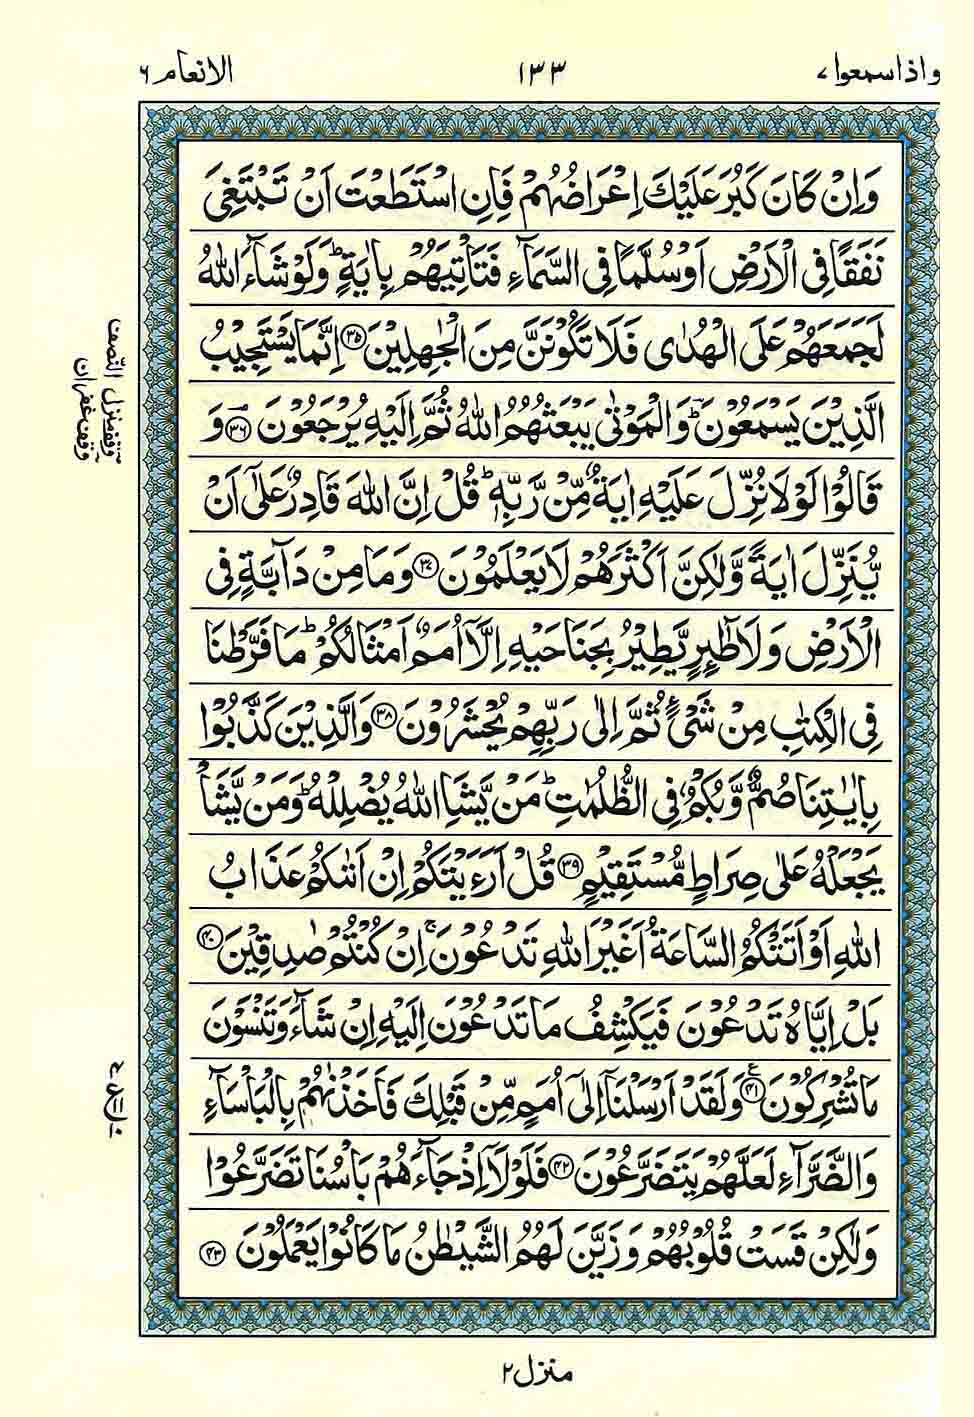 واذاسمعوا ۷
۱۳۳
الانعام ۶
وَاِنْ كَانَ كَبُرَ عَلَيْكَ اِعْرَاضُهُمْ فَاِنِ اسْتَطَعْتَ اَنْ تَبْتَغِىَ
نَفَقًا فِى الْاَرْضِ اَوْ سُلَّمًا فِى السَّمَآءِ فَتَاْتِيَهُمْ بِاٰيَةٍ ؕ وَلَوْ شَآءَ اللّٰهُ
لَجَمَعَهُمْ عَلَى الْهُدٰى فَلَا تَكُوْنَنَّ مِنَ الْجٰهِلِيْنَ ۟۳۵ اِنَّمَا يَسْتَجِيْبُ
الَّذِيْنَ يَسْمَعُوْنَ ؔؕ وَالْمَوْتٰى يَبْعَثُهُمُ اللّٰهُ ثُمَّ اِلَيْهِ يُرْجَعُوْنَ ۟۳۶ وَ
قَالُوْا لَوْلَا نُزِّلَ عَلَيْهِ اٰيَةٌ مِّنْ رَّبِّهٖ ؕ قُلْ اِنَّ اللّٰهَ قَادِرٌ عَلٰٓى اَنْ
يُّنَزِّلَ اٰيَةً وَّلٰكِنَّ اَكْثَرَهُمْ لَا يَعْلَمُوْنَ ۟۳۷ وَمَا مِنْ دَآبَّةٍ فِى
الْاَرْضِ وَلَا طٰٓئِرٍ يَّطِيْرُ بِجَنَاحَيْهِ اِلَّاۤ اُمَمٌ اَمْثَالُكُمْ ؕ مَا فَرَّطْنَا
فِى الْكِتٰبِ مِنْ شَىْءٍ ثُمَّ اِلٰى رَبِّهِمْ يُحْشَرُوْنَ ۟۳۸ وَالَّذِيْنَ كَذَّبُوْا
بِاٰيٰتِنَا صُمٌّ وَّبُكْمٌ فِى الظُّلُمٰتِ ؕ مَنْ يَّشَاِ اللّٰهُ يُضْلِلْهُ ؕ وَمَنْ يَّشَاْ
يَجْعَلْهُ عَلٰى صِرَاطٍ مُّسْتَقِيْمٍ ۟۳۹ قُلْ اَرَءَيْتَكُمْ اِنْ اَتٰىكُمْ عَذَابُ
اللّٰهِ اَوْ اَتَتْكُمُ السَّاعَةُ اَغَيْرَ اللّٰهِ تَدْعُوْنَ ۚ اِنْ كُنْتُمْ صٰدِقِيْنَ ۟۴۰
بَلْ اِيَّاهُ تَدْعُوْنَ فَيَكْشِفُ مَا تَدْعُوْنَ اِلَيْهِ اِنْ شَآءَ وَتَنْسَوْنَ
مَا تُشْرِكُوْنَ ۟۴۱ وَلَقَدْ اَرْسَلْنَاۤ اِلٰٓى اُمَمٍ مِّنْ قَبْلِكَ فَاَخَذْنٰهُمْ بِالْبَاْسَآءِ
وَالضَّرَّآءِ لَعَلَّهُمْ يَتَضَرَّعُوْنَ ۟۴۲ فَلَوْلَاۤ اِذْ جَآءَهُمْ بَاْسُنَا تَضَرَّعُوْا
وَلٰكِنْ قَسَتْ قُلُوْبُهُمْ وَزَيَّنَ لَهُمُ الشَّيْطٰنُ مَا كَانُوْا يَعْمَلُوْنَ ۟۴۳
وقف منزل
وقف غفران
منزل ۲